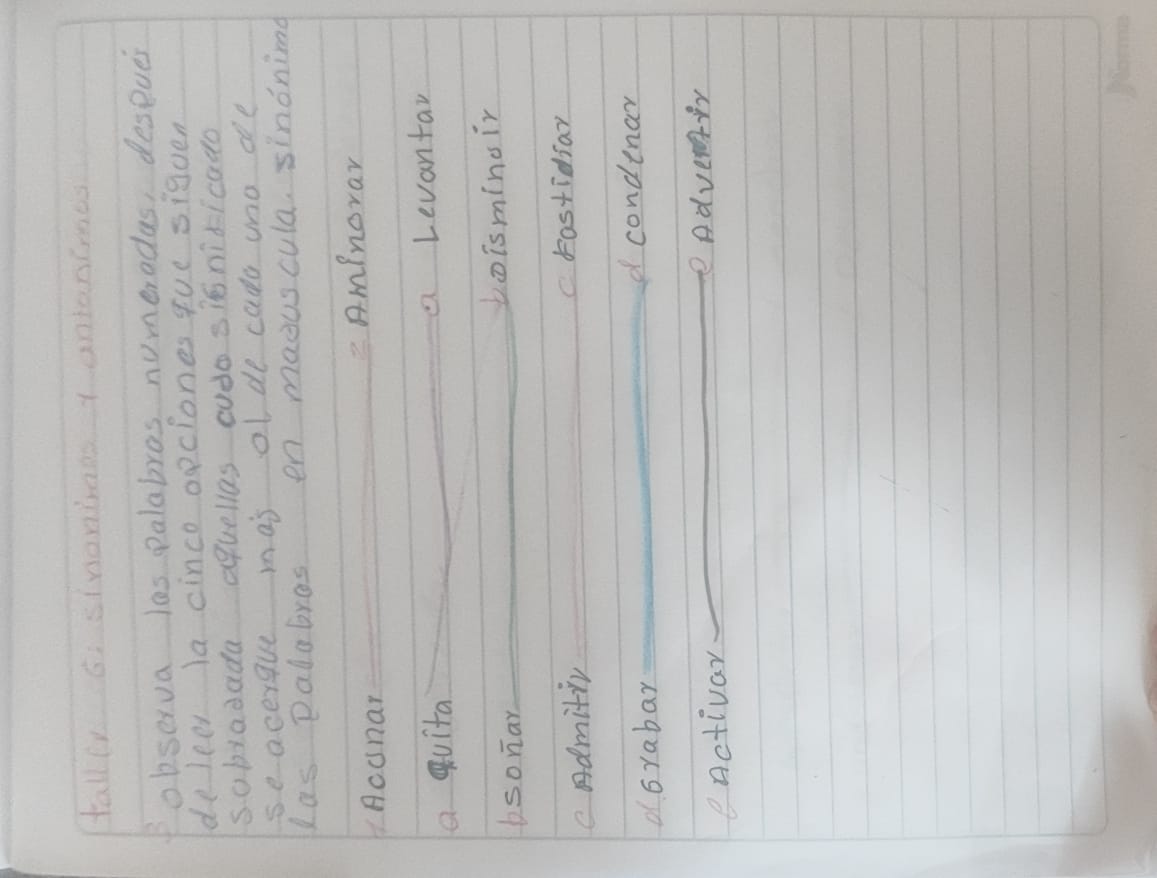 taller 6: sinonimos y antonimos
3 observa las palabras numeradas, después
de leer la cinco opciones que siguen
sobrayada aquellas cuyo significado
se acerque más al de cada uno de
las palabras en mayuscula. sinónimo
1 Acunar 2 Aminorar
a quita a Levantar
b soñar b Disminuir
c Admitir c fastidiar
d Grabar d condenar
e Activar e Advertir
Norma